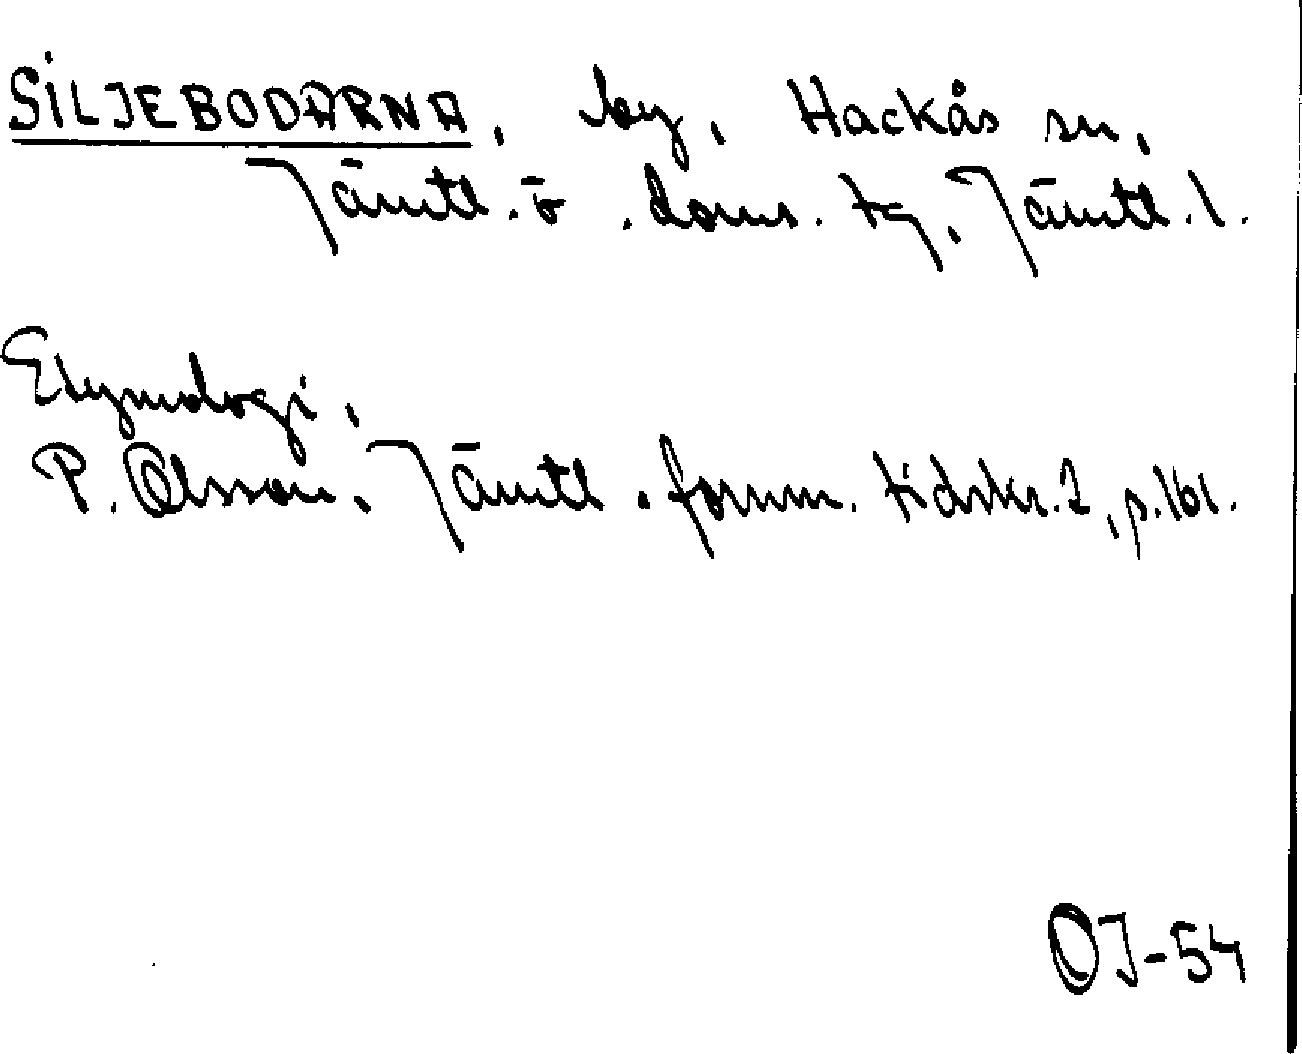 SILJEBODARNA, by, Hackås sn,
Jämtl. ö. doms. tg, Jämtl. l.
Etymologi,
P. Olsson, Jämtl. fornm. tidskr. 2, p. 161.
OJ-54